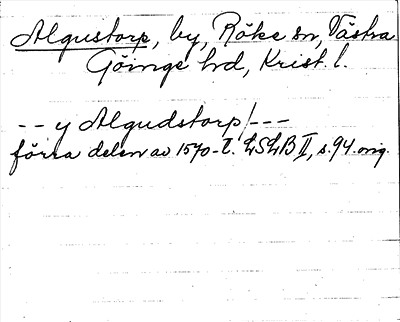 Algustorp, by, Röke sn, Västra
Göinge hd, Krist. l.
-- y Algudstorp/---
förra delen av 1570-t. LSLB II, s. 94. orig.